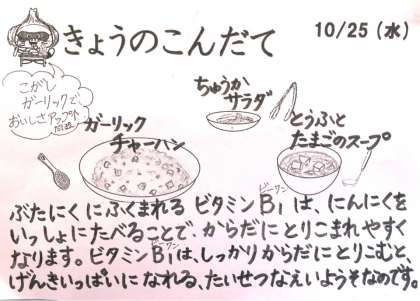 きょうのこんだて
10/25(水)
こがし
ガーリックで
おいしさアップ
ちゅうか
サラダ
ガーリック
チャーハン
とうふと
たまごのスープ
ぶたにくにふくまれるビタミンB₁は、にんにくを
ビーワン
いっしょにたべることで、からだにとりこまれやすく
なります。ビタミンB₁は、しっかりからだにとりこむと、
ビーワン
げんきいっぱいになれる、たいせつなえいようそなのです。